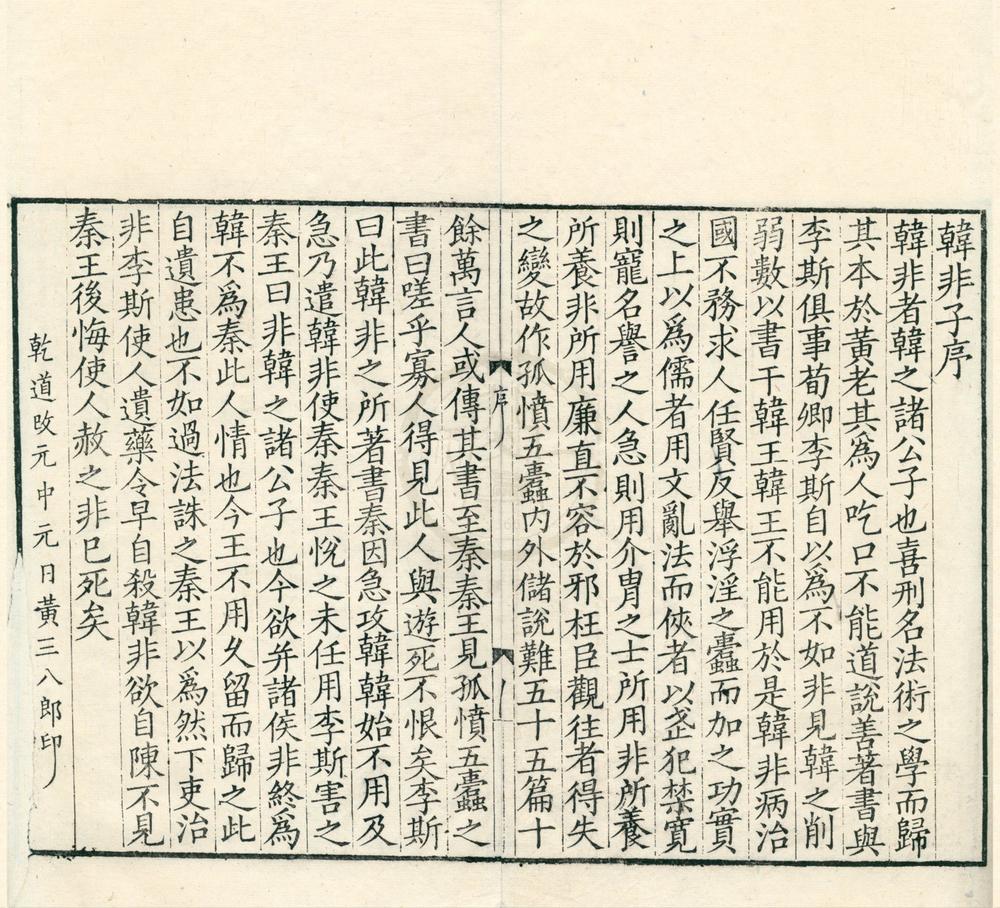 韓非子序
韓非者韓之諸公子也喜刑名法術之學而歸
其本於黃老其爲人吃口不能道說善著書與
李斯俱事荀卿李斯自以爲不如非見韓之削
弱數以書干韓王韓王不能用於是韓非病治
國不務求人任賢反舉浮淫之蠹而加之功實
之上以爲儒者用文亂法而俠者以武犯禁寬
則寵名譽之人急則用介冑之士所用非所養
所養非所用廉直不容於邪枉臣觀往者得失
之變故作孤憤五蠹內外儲說難五十五篇十
序
一
餘萬言人或傳其書至秦秦王見孤憤五蠹之
書曰嗟乎寡人得見此人與遊死不恨矣李斯
曰此韓非之所著書秦因急攻韓韓始不用及
急乃遣韓非使秦秦王悅之未任用李斯害之
秦王曰非韓之諸公子也今欲并諸侯非終爲
韓不爲秦此人情也今王不用久留而歸之此
自遺患也不如過法誅之秦王以爲然下吏治
非李斯使人遺藥令早自殺韓非欲自陳不見
秦王後悔使人赦之非已死矣
乾道改元中元日黃三八郎印